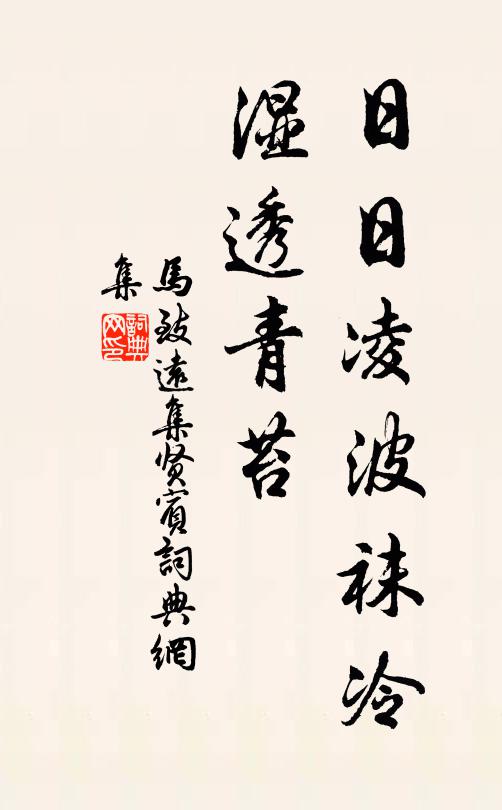 日日凌波袜冷
湿透青苔
馬致遠集贤賓詞典網
集
詞典
网印